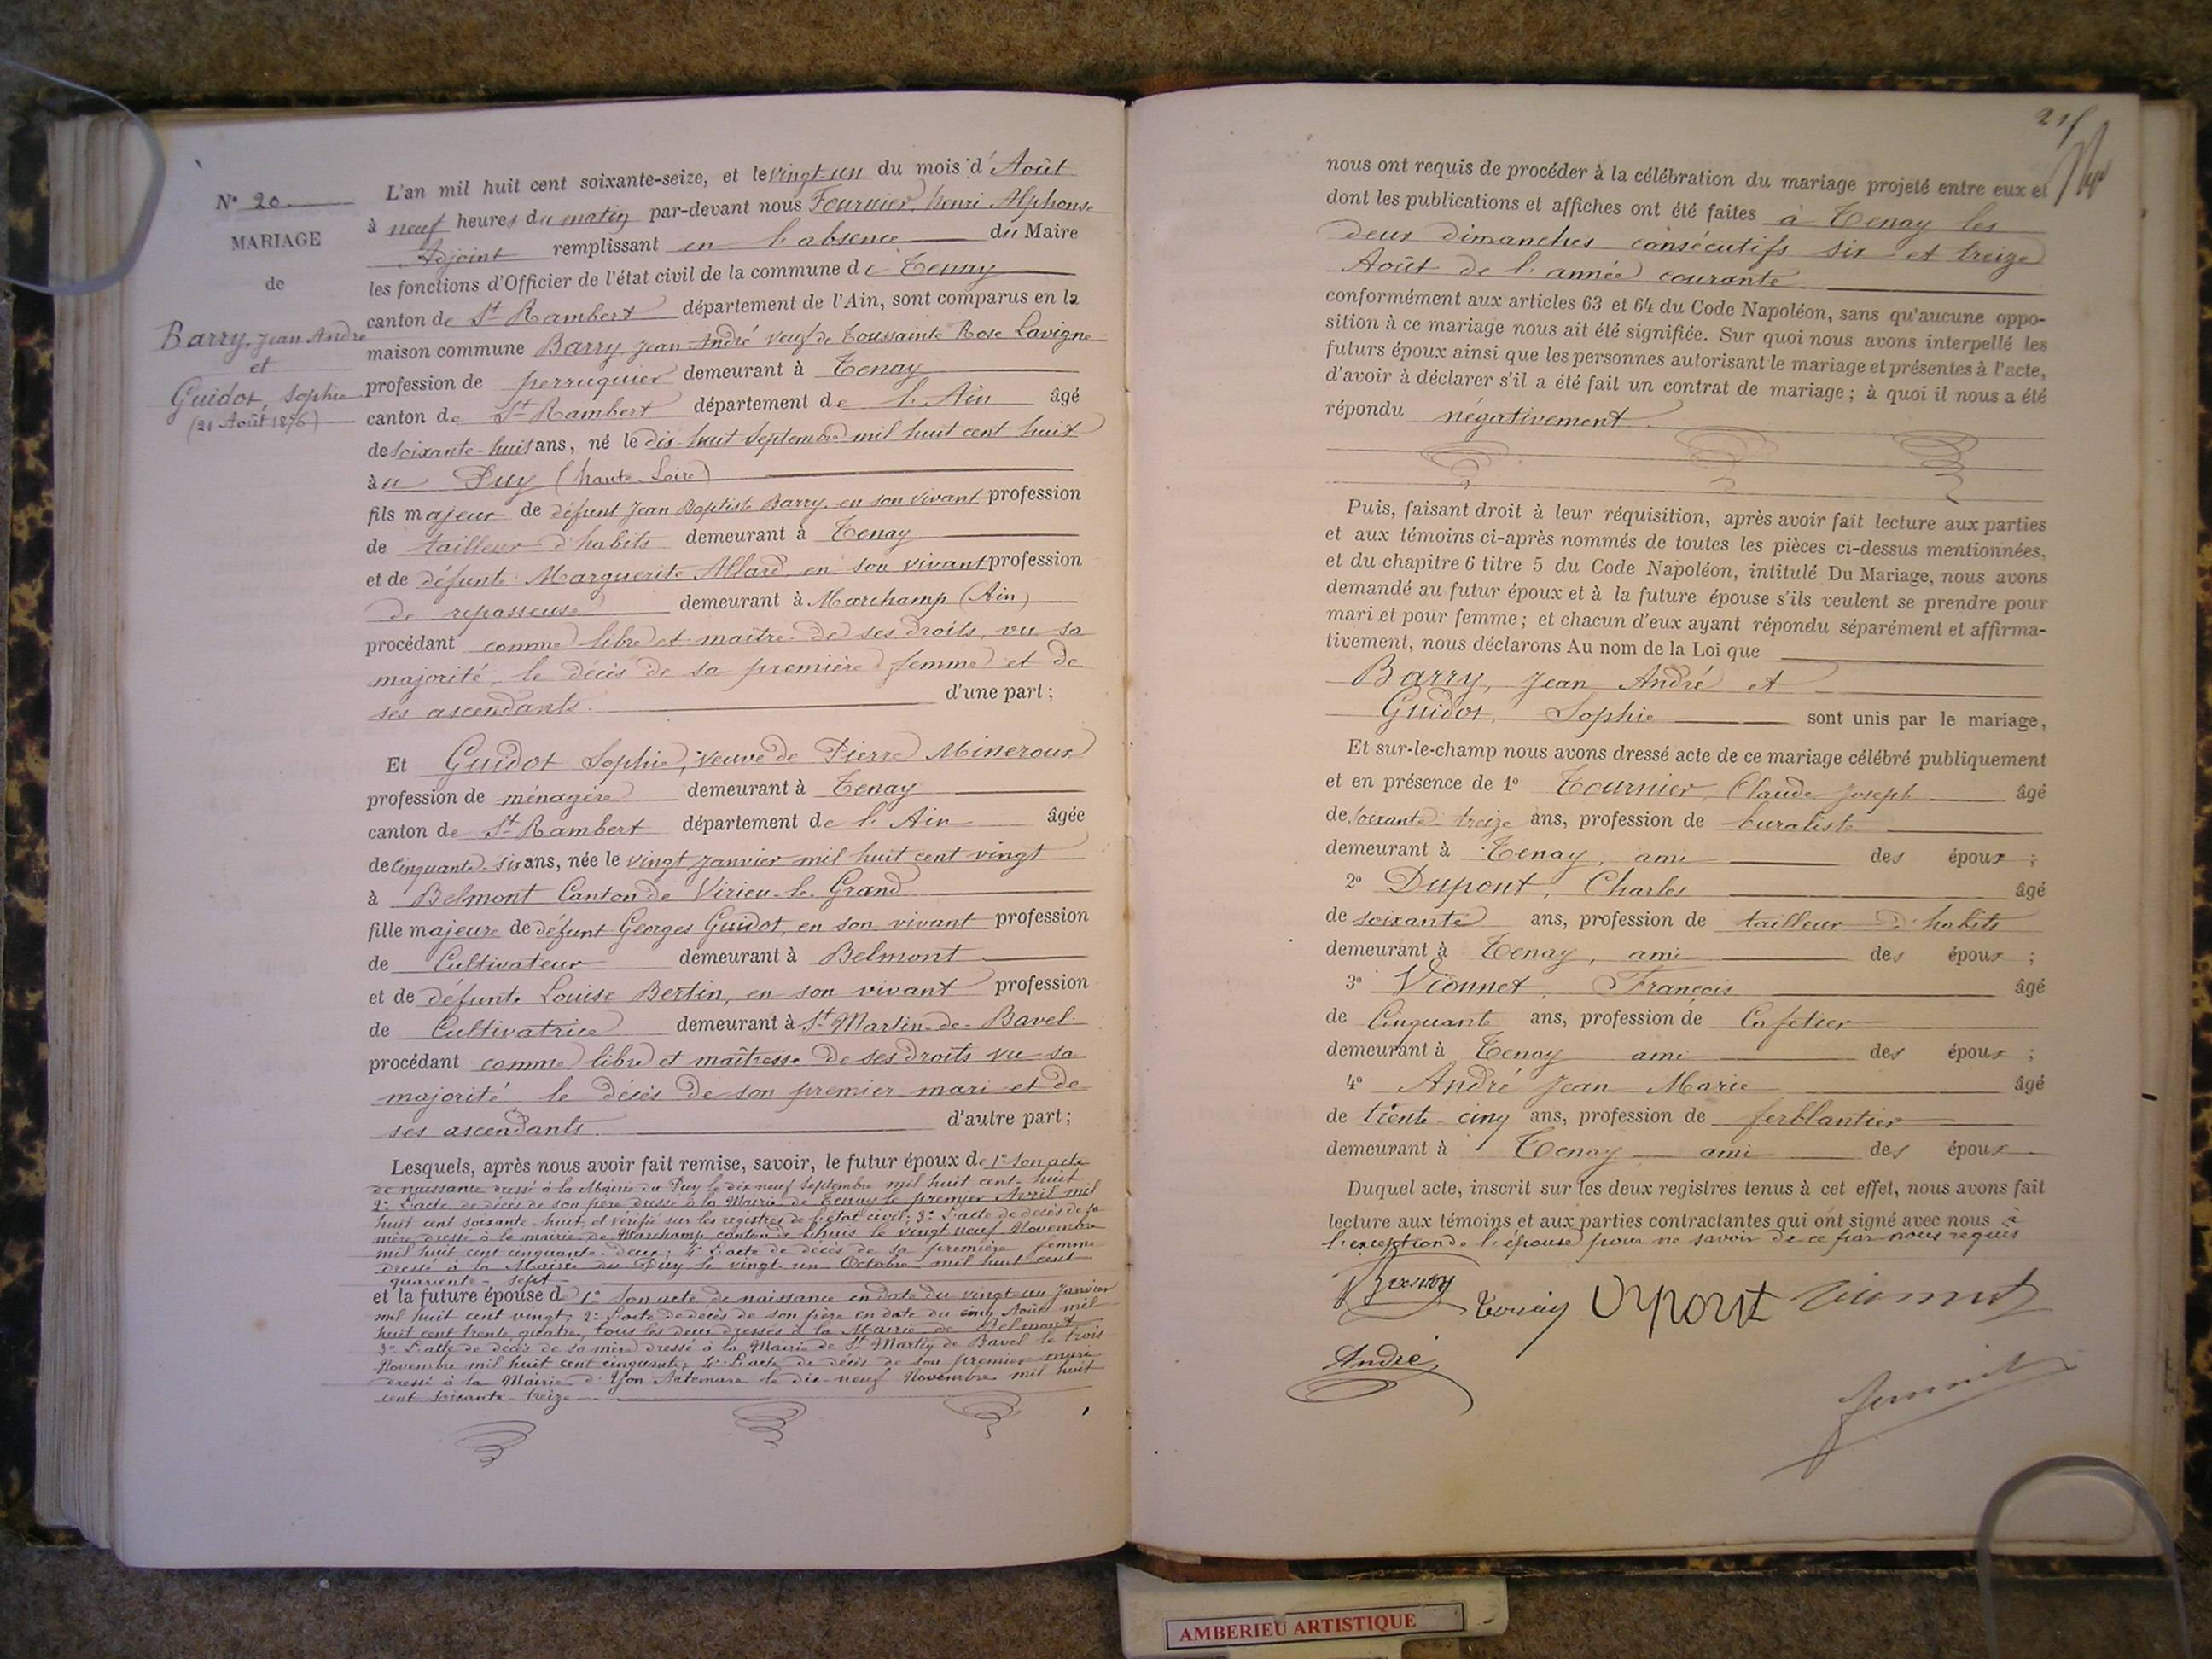 N° 20
MARIAGE
de
Barry, Jean André
et
Guidot, Sophie
(21 Août 1876)
L'an mil huit cent soixante-seize, et le vingt-un du mois d'Août
à neuf heures du matin par-devant nous Fournier, henri Alphonse
Adjoint remplissant en l'absence du Maire
les fonctions d'Officier de l'état civil de la commune de Tenay
canton de St Rambert département de l'Ain, sont comparus en la
maison commune Barry Jean André veuf de Toussainte Rose Lavigne
profession de perruquier demeurant à Tenay
canton de St Rambert département de l'Ain âgé
de soixante-huit ans, né le dix-huit Septembre mil huit cent huit
à u Puy (haute-Loire)
fils majeur de défunt Jean Baptiste Barry, en son vivant profession
de tailleur d'habits demeurant à Tenay
et de défunte Marguerite Allard, en son vivant profession
de repasseuse demeurant à Marchamp (Ain)
procédant comme libre et maître de ses droits, vu sa
majorité, le décès de sa première femme et de
ses ascendants. d'une part;
Et Guidot Sophie, veuve de Pierre Mineroux
profession de ménagère demeurant à Tenay
canton de St Rambert département de l'Ain âgée
de Cinquante-six ans, née le vingt Janvier mil huit cent vingt
à Belmont Canton de Virieu-le-Grand
fille majeure de défunt Georges Guidot, en son vivant profession
de Cultivateur demeurant à Belmont
et de défunte Louise Bertin, en son vivant profession
de Cultivatrice demeurant à St Martin-de-Bavel
procédant comme libre et maîtresse de ses droits vu sa
majorité le décès de son premier mari et de
ses ascendants. d'autre part;
Lesquels, après nous avoir fait remise, savoir, le futur époux de 1° Son acte
de naissance dressé à la Mairie du Puy le dix neuf Septembre mil huit cent-huit
2° L'acte de décès de son père dressé à la Mairie de Tenay le premier Avril mil
huit cent soixante-huit, et vérifié sur les registres de l'état civil; 3° L'acte de décès de sa
mère dressé à la mairie de Marchamp canton de Lhuis le vingt neuf Novembre
mil huit cent cinquante-deux; 4° L'acte de décès de sa première femme
dressé à la Mairie du Puy le vingt-un Octobre mil huit cent
quarante-sept
et la future épouse de 1° Son acte de naissance en date du vingt-un Janvier
mil huit cent vingt; 2° L'acte de décès de son père en date du cinq Août mil
huit cent trente quatre, tous les deux dressés à la Mairie de Belmont
3° L'acte de décès de sa mère dressé à la Mairie de St Martin de Bavel le trois
Novembre mil huit cent cinquante; 4° L'acte de décès de son premier mari
dressé à la Mairie d'Yon Artemare le dix-neuf Novembre mil huit
cent soixante-treize
21
nous ont requis de procéder à la célébration du mariage projeté entre eux et
dont les publications et affiches ont été faites à Tenay les
deux dimanches consécutifs six et treize
Août de l'année courante
conformément aux articles 63 et 64 du Code Napoléon, sans qu'aucune oppo-
sition à ce mariage nous ait été signifiée. Sur quoi nous avons interpellé les
futurs époux ainsi que les personnes autorisant le mariage et présentes à l'acte,
d'avoir à déclarer s'il a été fait un contrat de mariage; à quoi il nous a été
répondu négativement.
Puis, faisant droit à leur réquisition, après avoir fait lecture aux parties
et aux témoins ci-après nommés de toutes les pièces ci-dessus mentionnées,
et du chapitre 6 titre 5 du Code Napoléon, intitulé Du Mariage, nous avons
demandé au futur époux et à la future épouse s'ils veulent se prendre pour
mari et pour femme; et chacun d'eux ayant répondu séparément et affirma-
tivement, nous déclarons Au nom de la Loi que
Barry, Jean André et
Guidot, Sophie sont unis par le mariage,
Et sur-le-champ nous avons dressé acte de ce mariage célébré publiquement
et en présence de 1° Tournier, Claude Joseph âgé
de soixante-treize ans, profession de buraliste
demeurant à Tenay, ami des époux;
2° Dupont, Charles âgé
de soixante ans, profession de tailleur d'habits
demeurant à Tenay, ami des époux;
3° Vionnet, François âgé
de Cinquante ans, profession de Cafetier
demeurant à Tenay ami des époux;
4° André Jean Marie âgé
de trente-cinq ans, profession de ferblantier
demeurant à Tenay ami des époux
Duquel acte, inscrit sur les deux registres tenus à cet effet, nous avons fait
lecture aux témoins et aux parties contractantes qui ont signé avec nous à
l'exception de l'épouse pour ne savoir de ce par nous requis
Barry Dupont Vionnet
André
AMBERIEU ARTISTIQUE